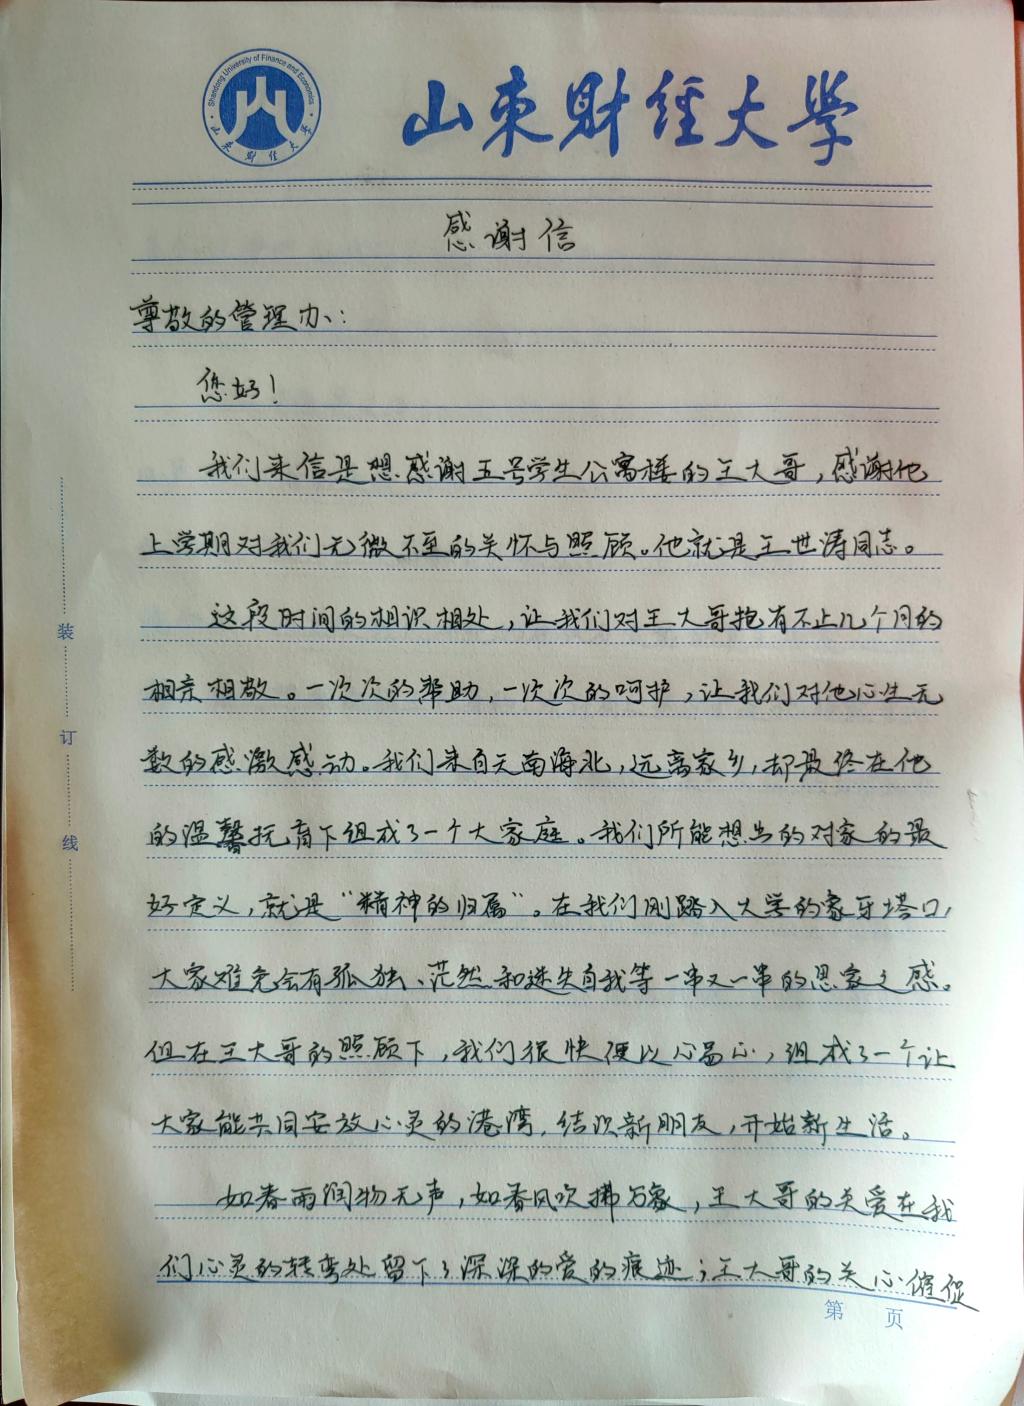 Shandong University of Finance and Economics
山东财经大学
山東财經大學
感谢信
尊敬的管理办：
您好！
我们来信是想感谢五号学生公寓楼的王大哥，感谢他
上学期对我们无微不至的关怀与照顾。他就是王世涛同志。
这段时间的相识相处，让我们对王大哥抱有不止几个月的
相亲相敬。一次次的帮助，一次次的呵护，让我们对他心生无
数的感激感动。我们来自天南海北，远离家乡，却最终在他
的温馨抚育下组成了一个大家庭。我们所能想出的对家的最
好定义，就是“精神的归属”。在我们刚踏入大学的象牙塔口，
大家难免会有孤独、茫然和迷失自我等一串又一串的思家之感。
但在王大哥的照顾下，我们很快便以心易心，组成了一个让
大家能共同安放心灵的港湾，结识新朋友，开始新生活。
如春雨润物无声，如春风吹拂万象，王大哥的关爱在我
们心灵的转弯处留下了深深的爱的痕迹；王大哥的关心催促
装
订
线
第 页